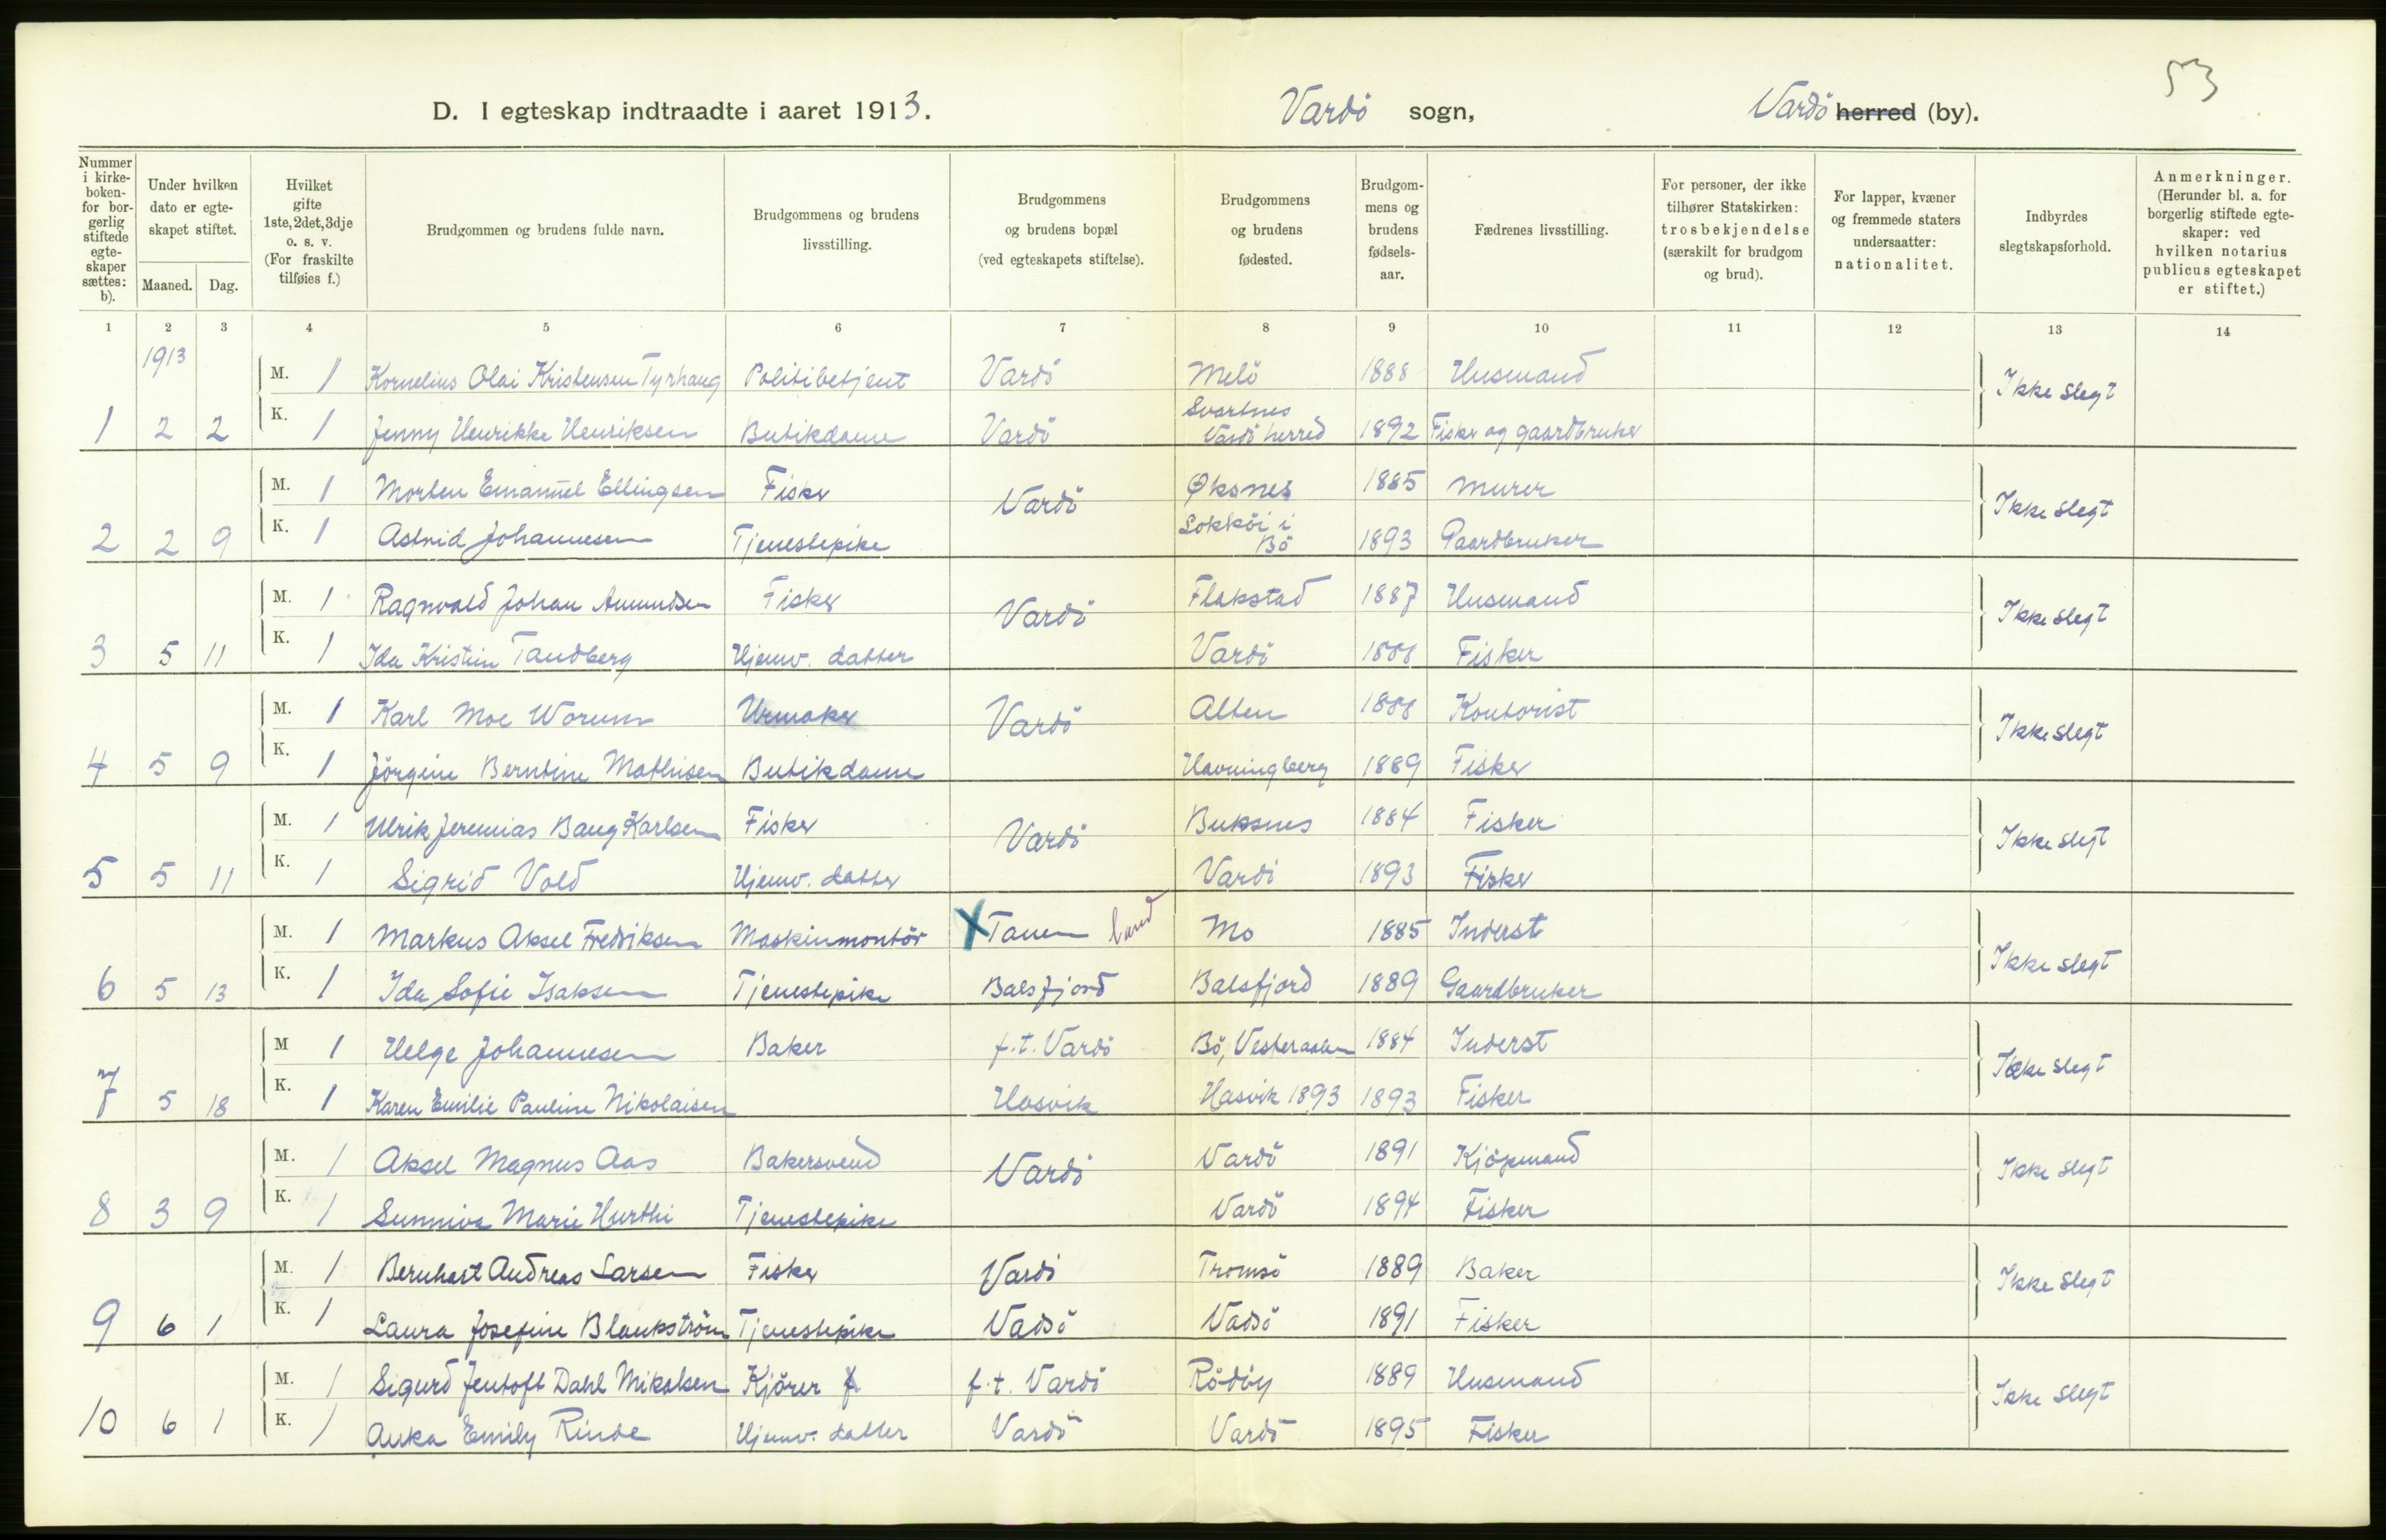 53
D. I egteskap indtraadte i aaret 1913. Vardö sogn, Vardö herred (by).
Nummer i kirke-boken- for bor-gerlig stiftede egte-skaper sættes: b).
Under hvilken dato er egte-skapet stiftet.
Maaned. Dag.
Hvilket gifte 1ste, 2det, 3dje o. s. v. (For fraskilte tilføies f.)
Brudgommen og brudens fulde navn.
Brudgommens og brudens livsstilling.
Brudgommens og brudens bopæl (ved egteskapets stiftelse).
Brudgommens og brudens fødested.
Brudgom-mens og brudens fødsels-aar.
Fædrenes livsstilling.
For personer, der ikke tilhører Statskirken: trosbekjendelse (særskilt for brudgom og brud).
For lapper, kvæner og fremmede staters undersaatter: nationalitet.
Indbyrdes slegtskapsforhold.
Anmerkninger. (Herunder bl. a. for borgerlig stiftede egte-skaper: ved hvilken notarius publicus egteskapet er stiftet.)
1 2 3 4 5 6 7 8 9 10 11 12 13 14
1913
M. 1 Kornelius Olai Kristensen Tyrhaug Politibetjent Vardö Melö 1888 Husmand Ikke slegt
1 2 2 K. 1 Jenny Henrikke Henriksen Butikdame Vardö Svartnes Vardö herred 1892 Fisker og gaardbruker
M. 1 Morten Emanuel Ellingsen Fisker Vardö Øksnes 1885 Murer Ikke slegt
2 2 9 K. 1 Astrid Johannesen Tjenestepike Lokköi i Bö 1893 Gaardbruker
M. 1 Ragnvald Johan Amundsen Fisker Vardö Flakstad 1887 Husmand Ikke slegt
3 5 11 K. 1 Ida Kristin Tandberg Hjemv. datter Vardö 1888 Fisker
M. 1 Karl Moe Worum Urmaker Vardö Alten 1888 Kontorist Ikke slegt
4 5 9 K. 1 Jörgine Berntine Mathisen Butikdame Havningberg 1889 Fisker
M. 1 Ulrik Jeremias Baug Karlsen Fisker Vardö Buksnes 1884 Fisker Ikke slegt
5 5 11 K. 1 Sigrid Vold Hjemv. datter Vardö 1893 Fisker
M. 1 Markus Aksel Fredriksen Maskinmontör X Tanen land Mo 1885 Inderst Ikke slegt
6 5 13 K. 1 Ida Sofie Isaksen Tjenestepike Balsfjord Balsfjord 1889 Gaardbruker
M 1 Helge Johannesen Baker f.t. Vardö Bö, Vesteraalen 1884 Inderst Ikke slegt
7 5 18 K. 1 Karen Emilie Pauline Nikolaisen Hasvik Hasvik 1893 1893 Fisker
M. 1 Aksel Magnus Aas Bakersvend Vardö Vardö 1891 Kjöpmand Ikke slegt
8 3 9 K. 1 Sunniva Marie Hurthi Tjenestepike Vardö 1894 Fisker
M. 1 Bernhart Andreas Larsen Fisker Vardö Tromsö 1889 Baker Ikke slegt
9 6 1 K. 1 Laura Josefine Blankström Tjenestepike Vadsö Vadsö 1891 Fisker
M. 1 Sigurd Jentoft Dahl Mikalsen Kjörer f.t. Vardö Rödöy 1889 Husmand Ikke slegt
10 6 1 K. 1 Anka Emily Rinde Hjemv. datter Vardö Vardö 1895 Fisker